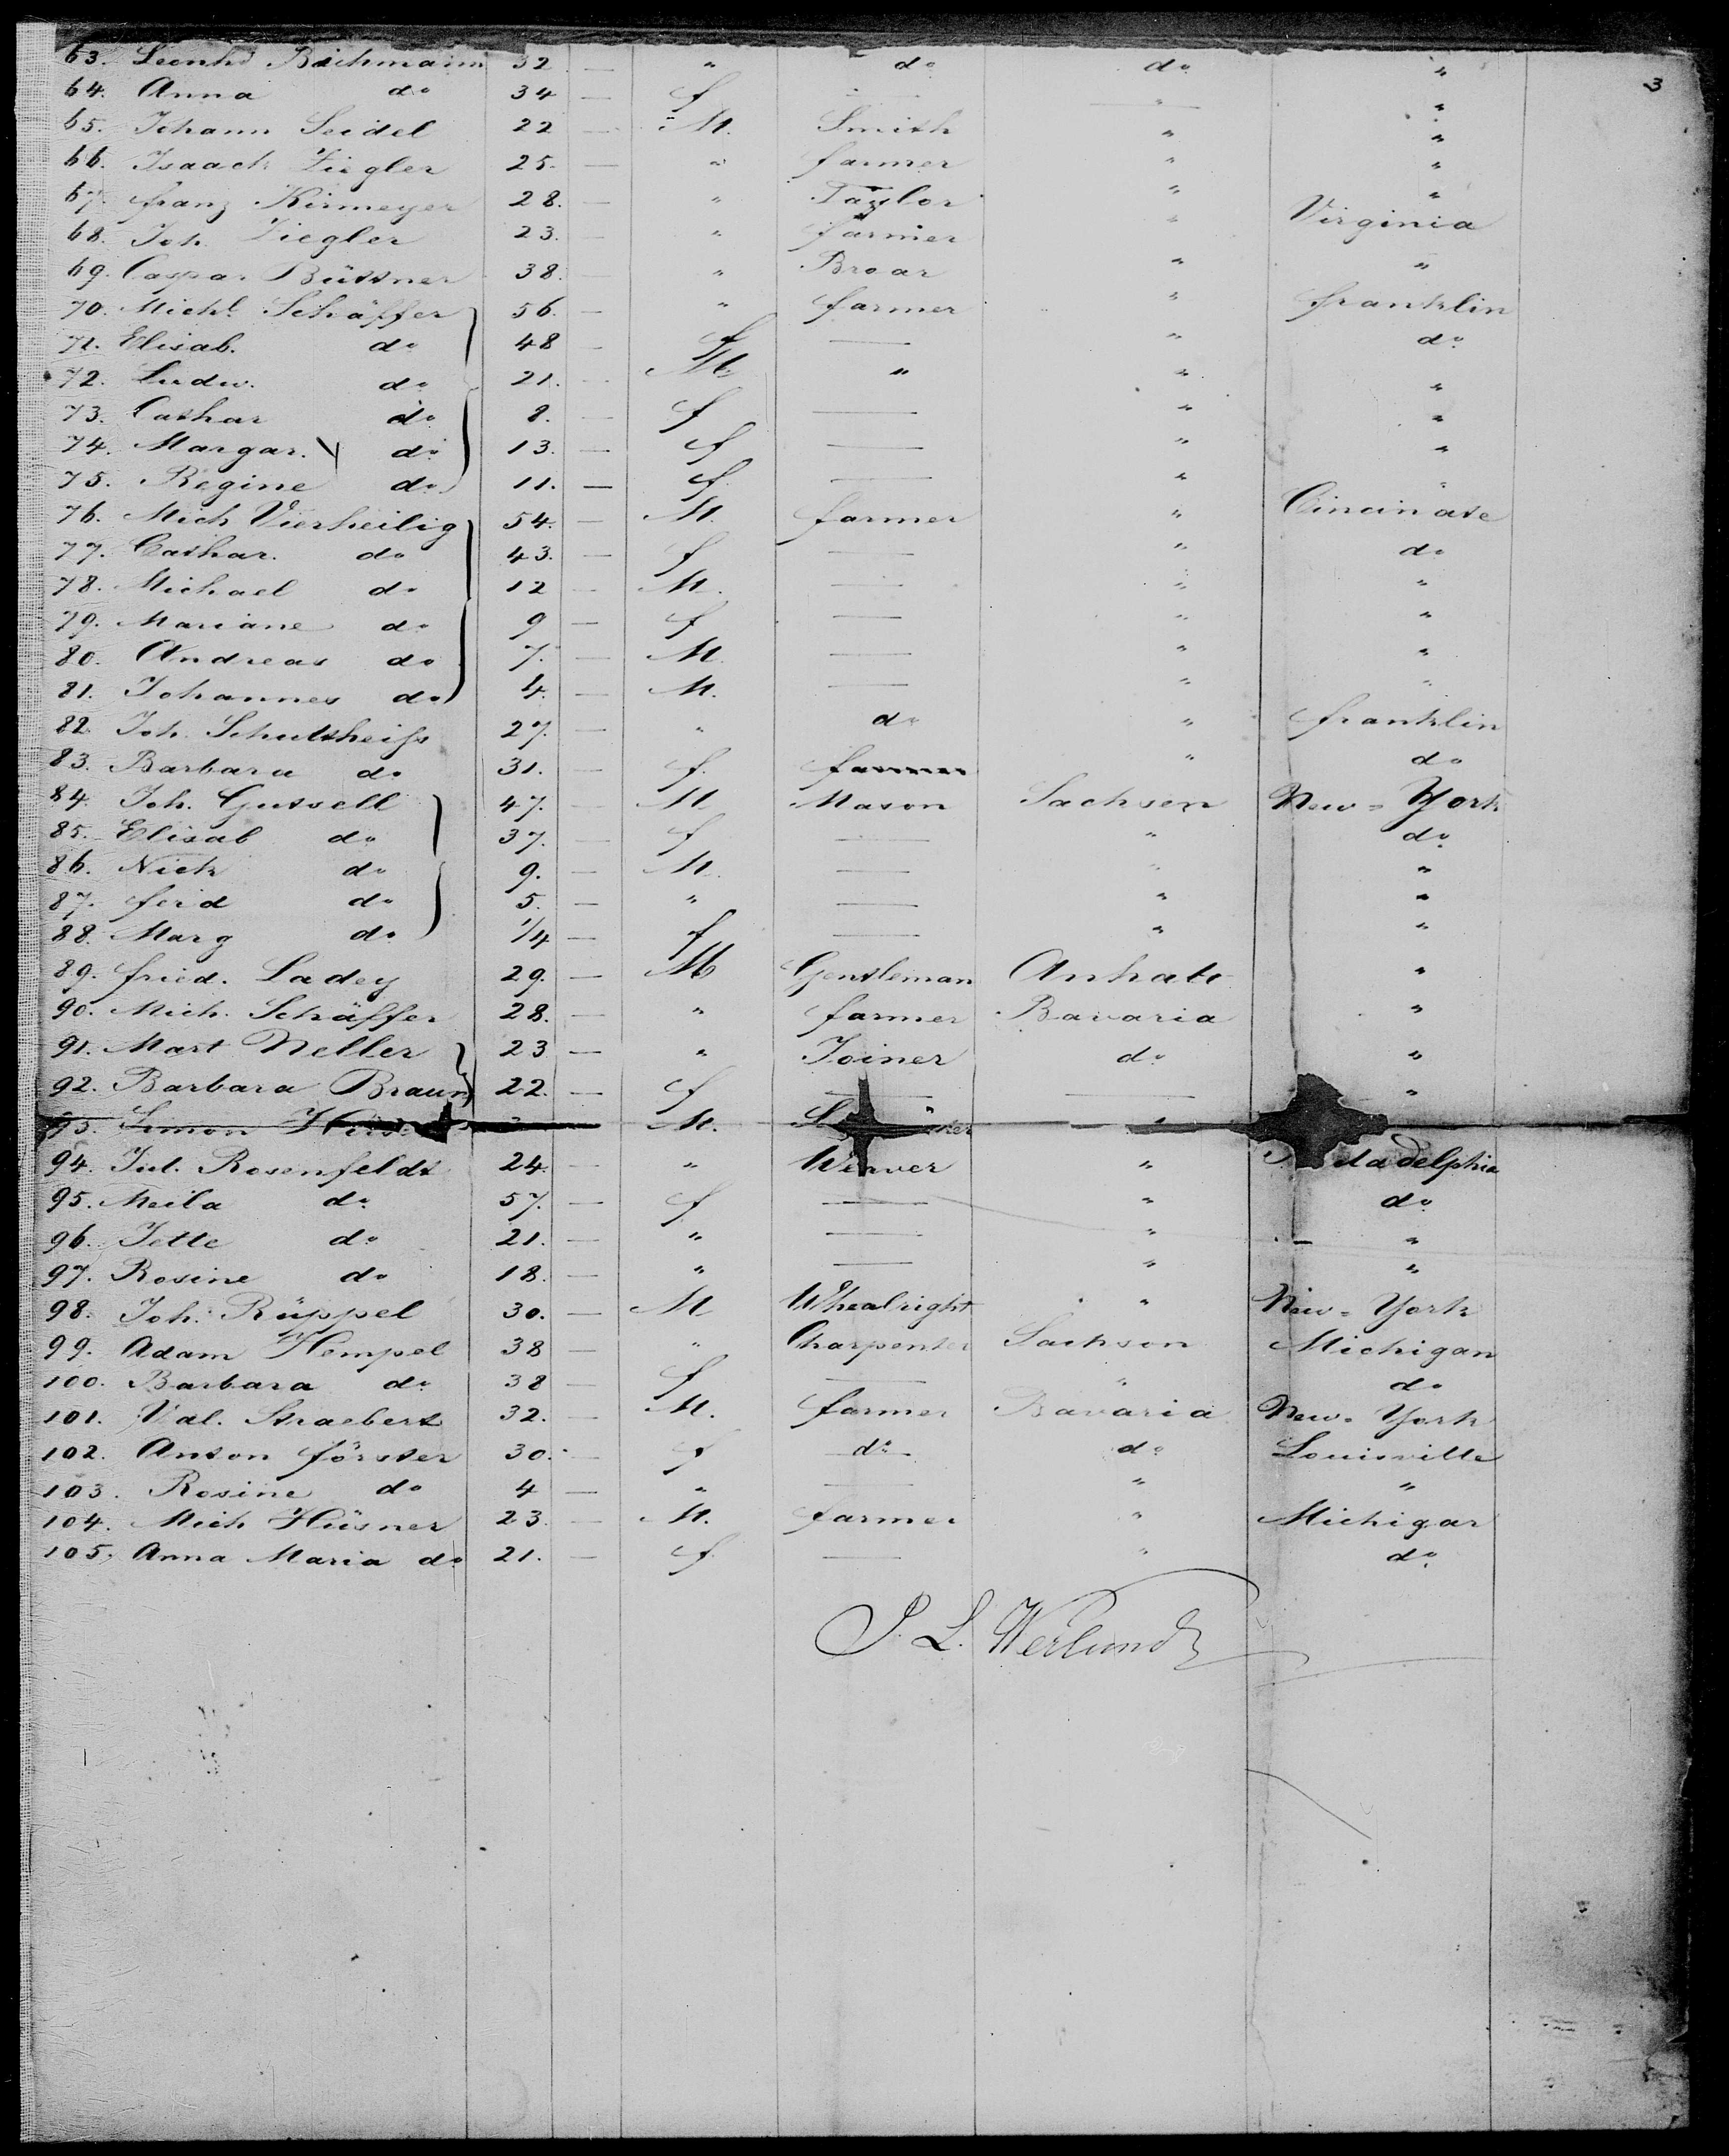 3
63. Leonhd Bachmann 32 — " do do "
64. Anna do 34 — f — " "
65. Johann Seidel 22 — M. Smith " "
66. Isaack Ziegler 25. — " farmer " "
67. franz Kirmeyer 28. — " Taylor " "
68. Joh. Ziegler 23. — " farmer " Virginia
69. Caspar Büttner 38. — " Broar " "
70. Michl. Schäffer 56. — " farmer " franklin
71. Elisab. do 48 — f — " do
72. Ludw. do 21. — M " " "
73. Cathar do 8. — f — " "
74. Margar. do 13. — f — " "
75. Regine do 11. — f — " "
76. Mich Vierheilig 54. — M. farmer " Cincinate
77. Cathar. do 43. — f — " do
78. Michael do 12 — M. — " "
79. Mariane do 9 — f — " "
80. Andreas do 7. — M. — " "
81. Johannes do 4. — M. — " "
82. Joh. Schultheifs 27. — " do " franklin
83. Barbara do 31. — f. farmer " do
84. Joh. Gutsell 47. — M Mason Sachsen New=York
85. Elisab do 37. — f — " do
86. Nick do 9. — M. — " "
87. ferd do 5. — " — " "
88. Marg do 1/4 — f — " "
89. fried. Ladey 29. — M Gentleman Anhalt "
90. Mich. Schäffer 28. — " farmer Bavaria "
91. Mart Neller 23 — " Joiner do "
92. Barbara Braun 22. — f — — "
93. Simon M. "
94. Jul. Rosenfeldt 24. — " Weaver " delphia
95. Meila do 57. — f — " do
96. Jette do 21. — " — " "
97. Rosine do 18. — " — " "
98. Joh. Rüppel 30. — M Whealright " New=York
99. Adam Hempel 38 — " Charpenter Sachson Michigan
100. Barbara do 38 — f — " do
101. Val. Straebert 32. — M. farmer Bavaria New=York
102. Anton förster 30. — f do do Louisville
103. Rosine do 4 — " — " "
104. Mich Hüsner 23. — M. farmer " Michigan
105. Anna Maria do 21. — f — " do